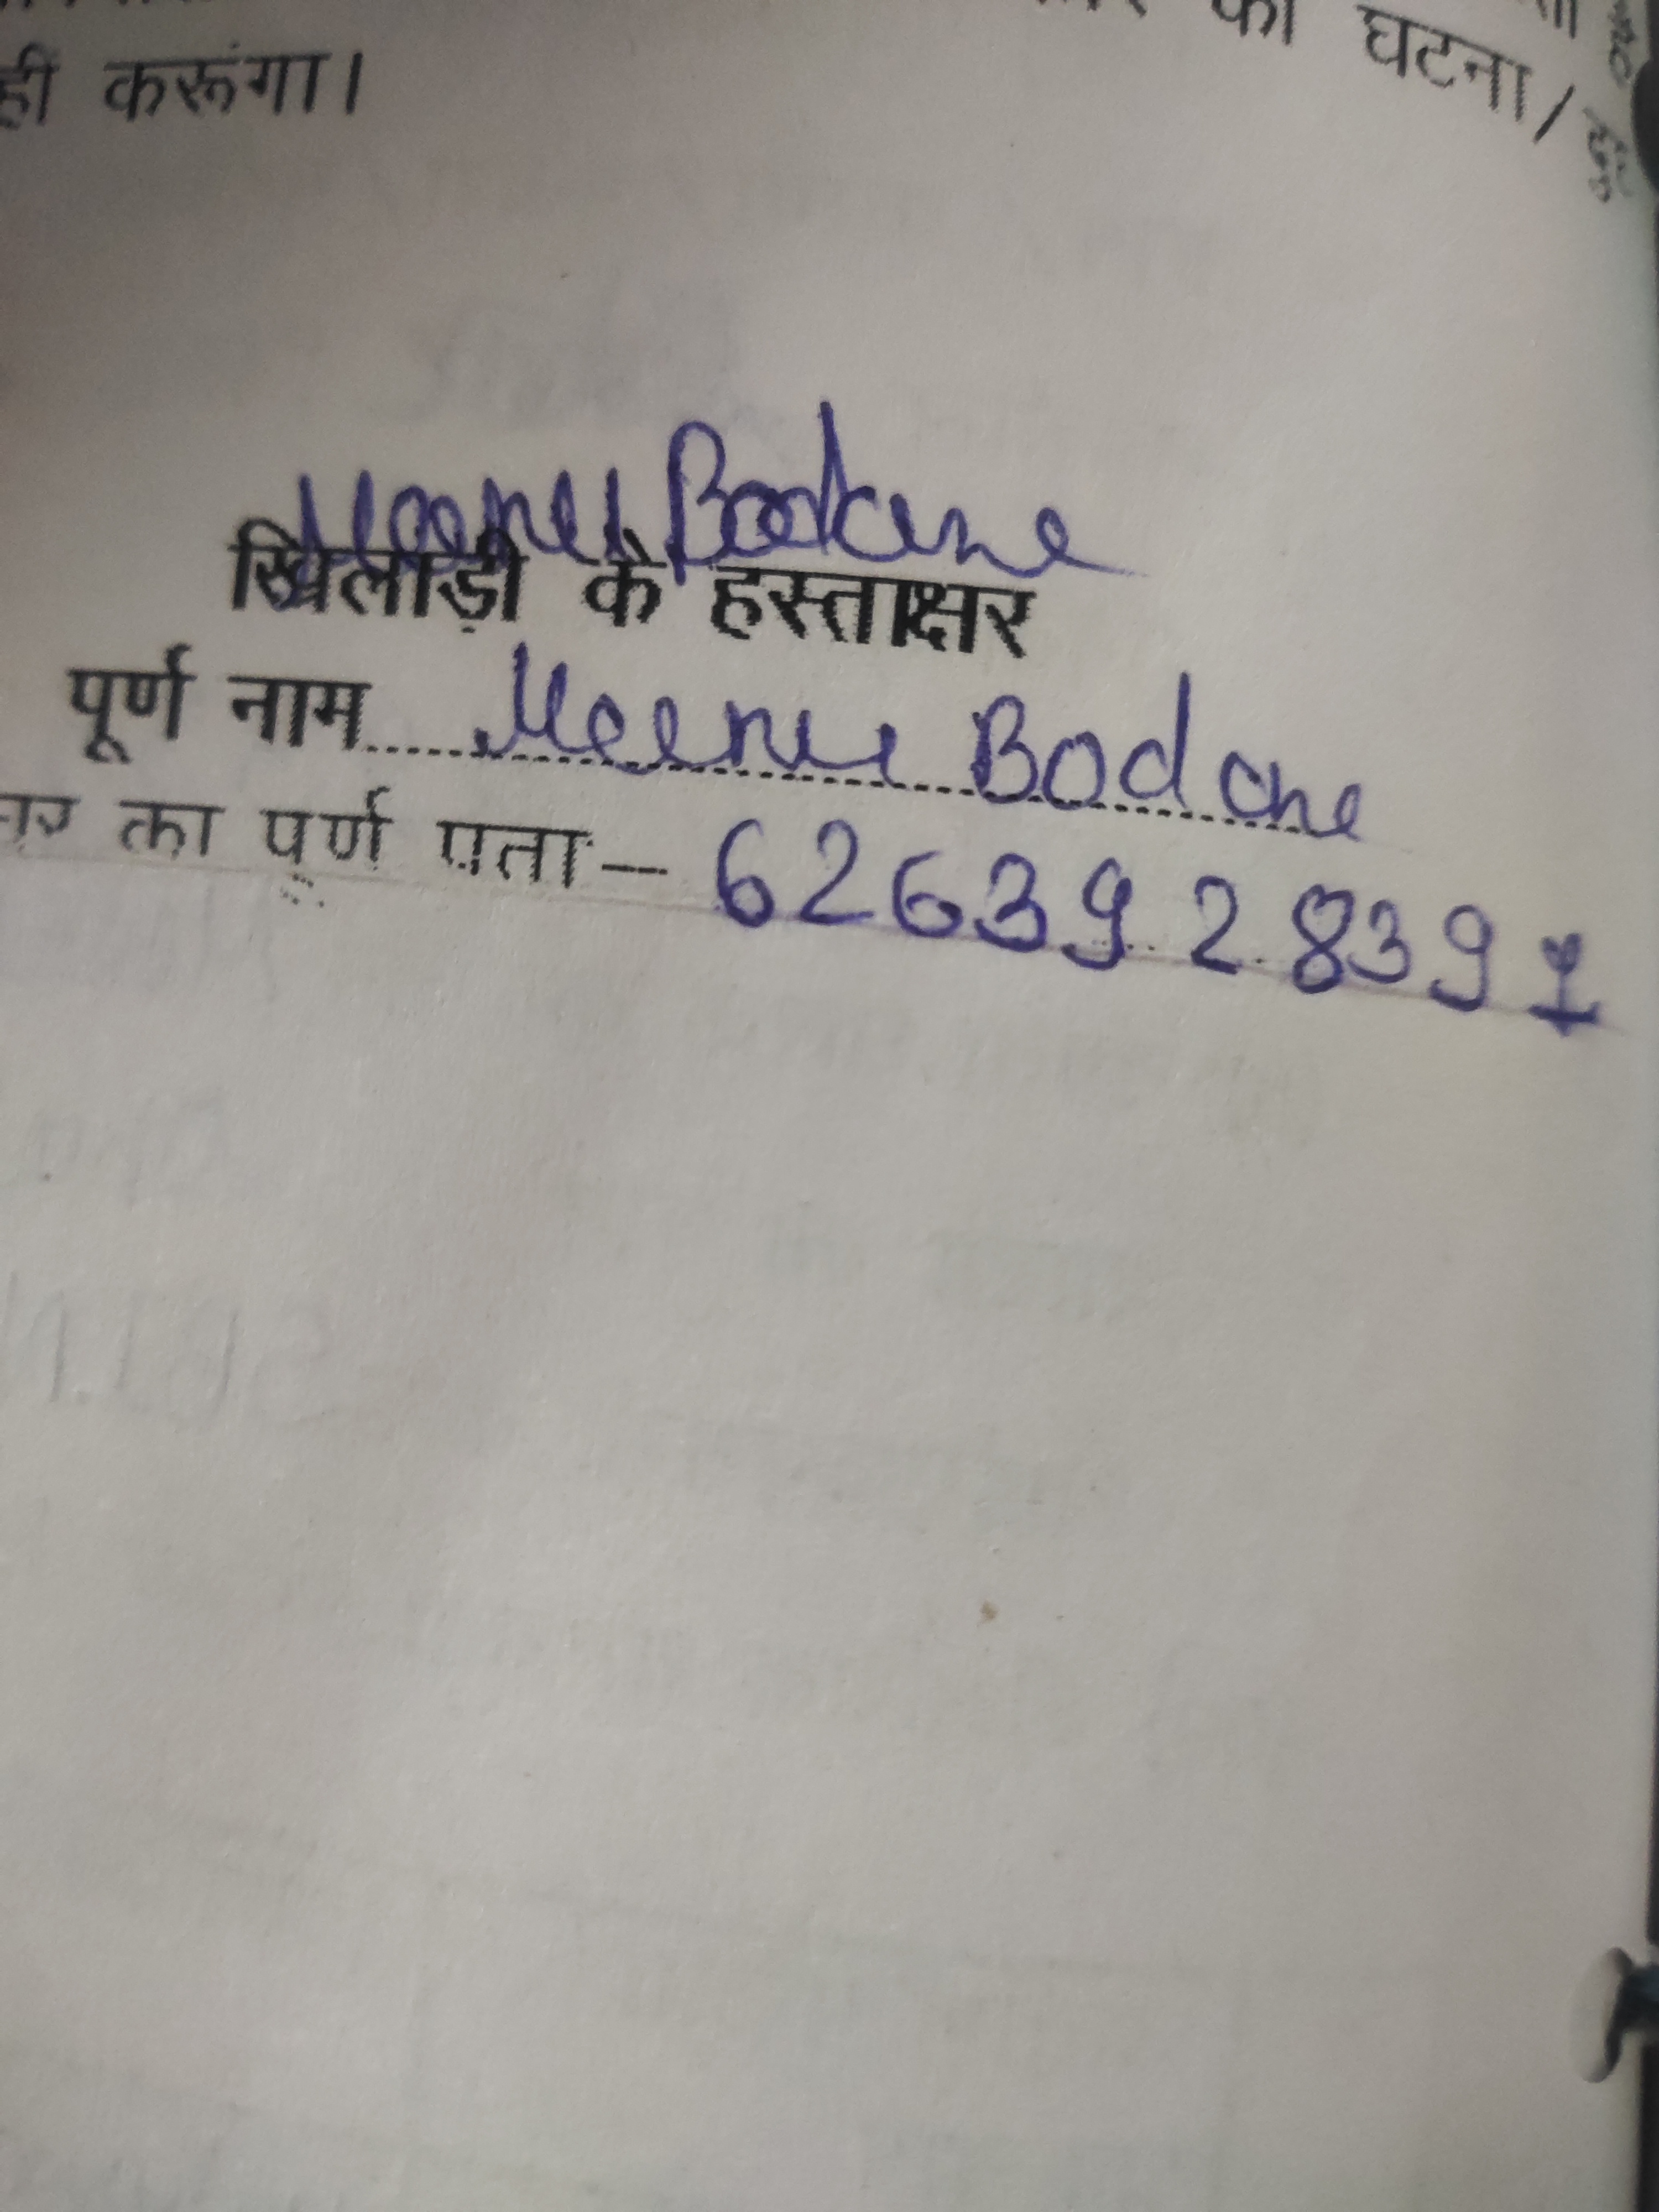 की घटना।
ही करूंगा।
Meenu Bodane
खिलाड़ी के हस्ताक्षर
पूर्ण नाम Meenu Bodane
का पूर्ण पता— 626392839